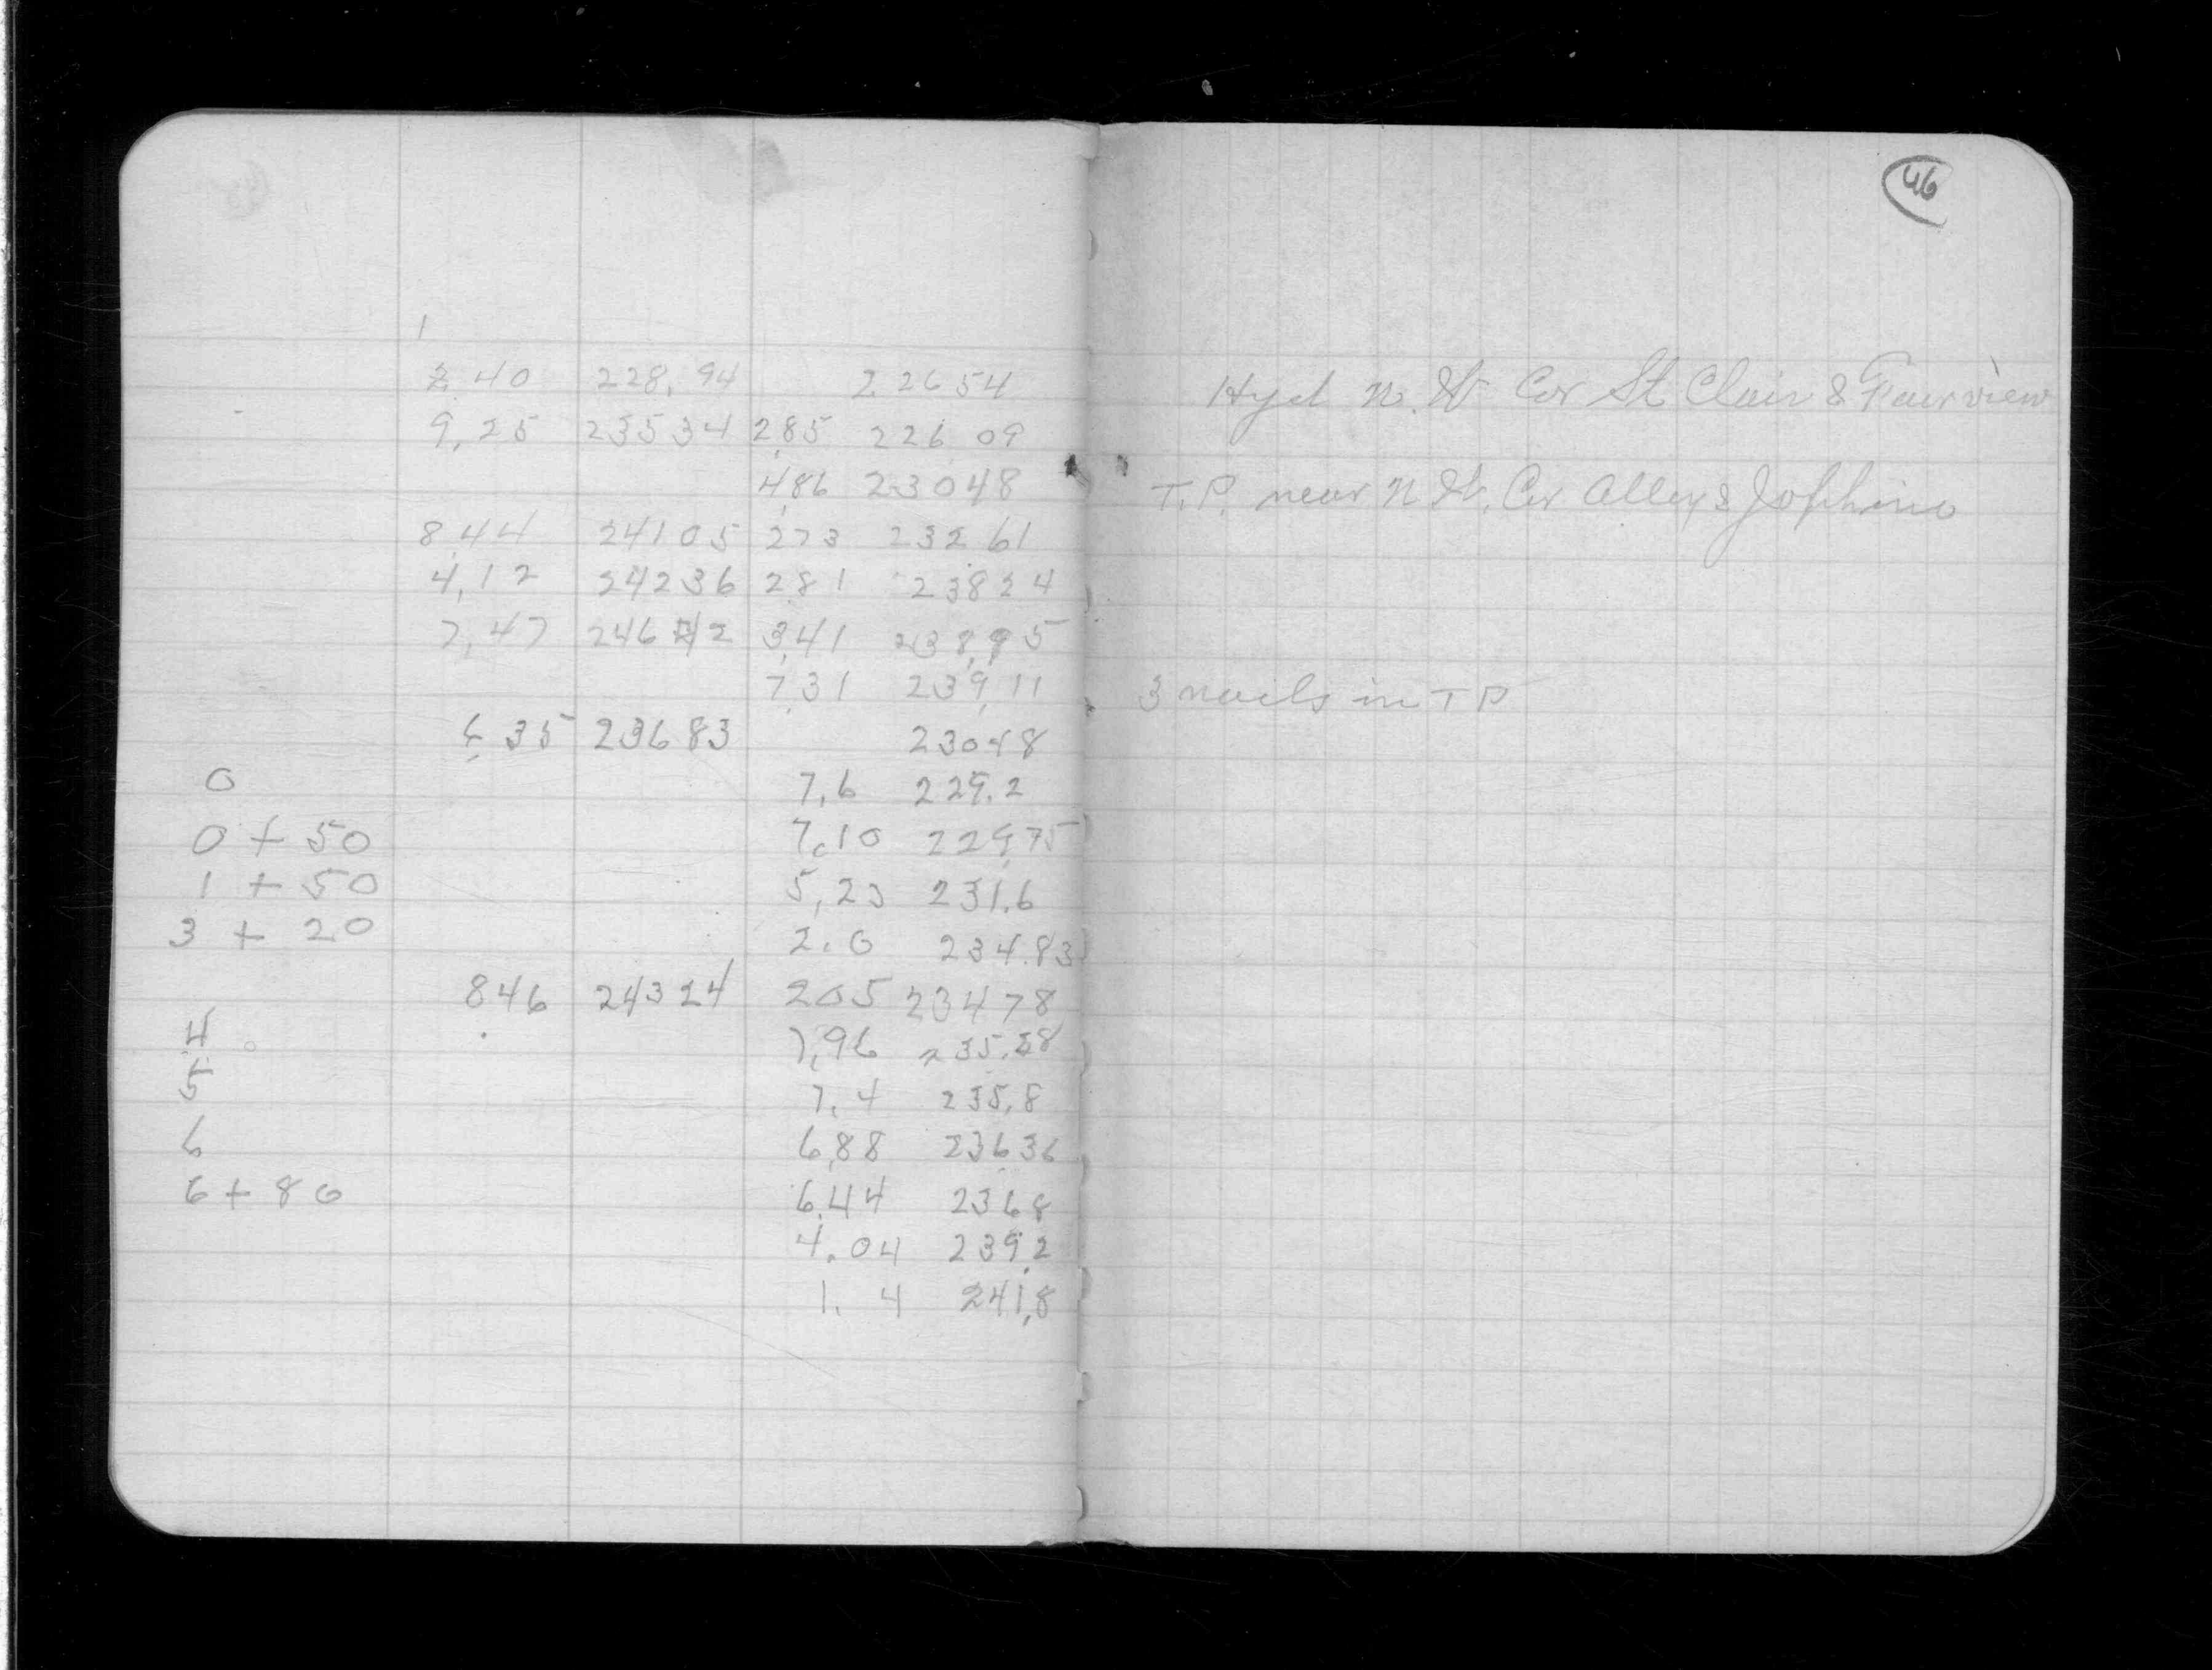 46
1
2.40 228.94 226 54
9.25 235 34 2.85 226 09
4.86 230 48
8.44 241 05 273 232 61
4.12 242 36 281 238 24
7.47 246 42 3.41 238.95
7.31 239.11
6.35 236 83 230 48
0 7.6 229.2
0 + 50 7.10 229.75
1 + 50 5.23 231.6
3 + 20 2.0 234.83
846 243 24 205 234 78
4 7.96 235.28
5 7.4 235.8
6 6.88 236 36
6 + 80 6.44 236 8
4.04 239.2
1.4 241.8
Hyd N.W Cor St Clair & Fairview
T.P. near N W. Cor Alley &
3 nails in T P